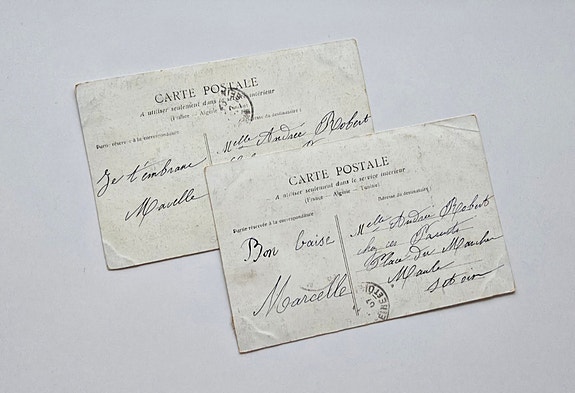 CARTE POSTALE
A utiliser seulement dans le service intérieur
(France - Algérie - Tunisie)
Partie réservée à la correspondance
Adresse du destinataire
Je t'embrasse
Marcelle
Melle Andrée Robert
CARTE POSTALE
A utiliser seulement dans le service intérieur
(France - Algérie - Tunisie)
Partie réservée à la correspondance
Adresse du destinataire
Bon baise
Marcelle
Melle Andrée Robert
chez ses Parents
Place du Marché
Maule
S et oise